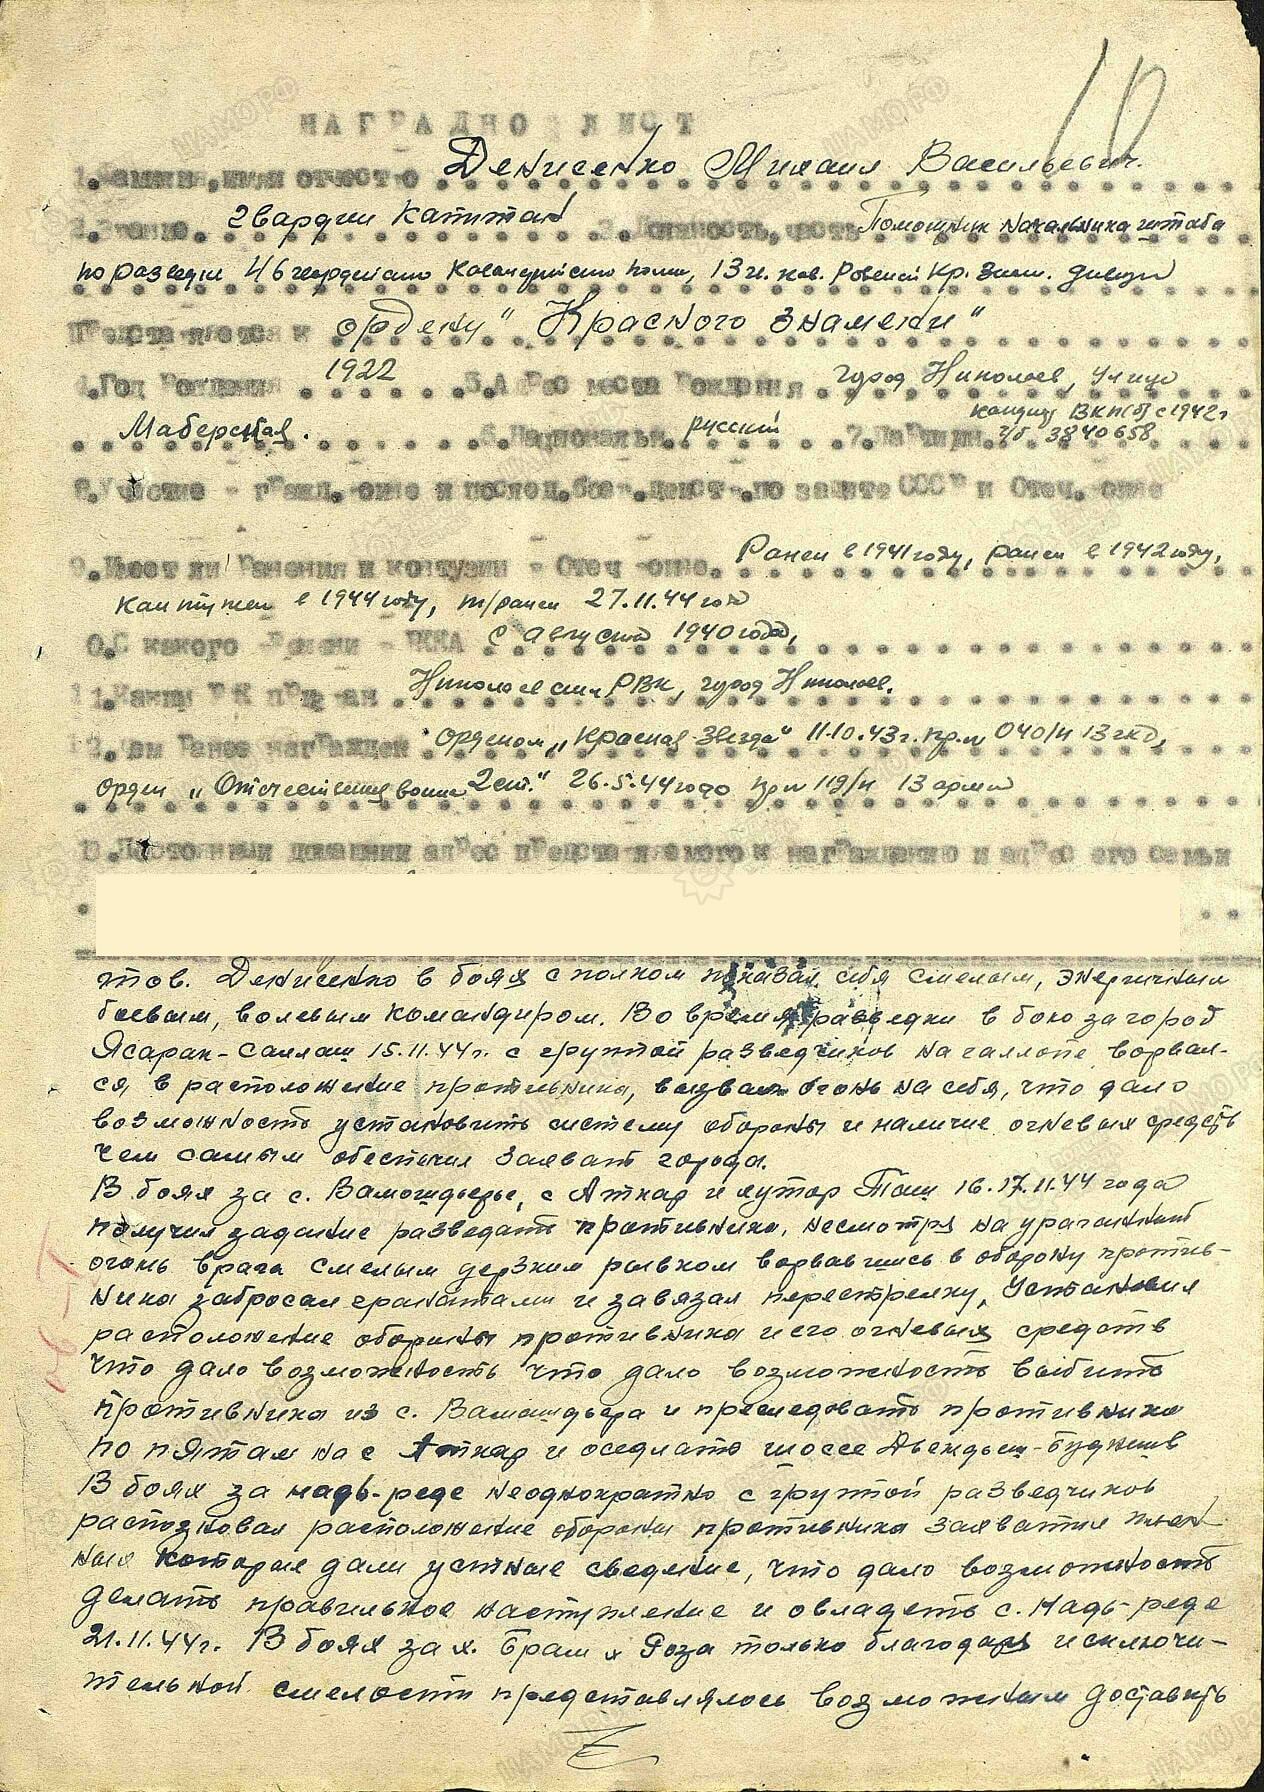 10
НАГРАДНОЙ ЛИСТ
1.Фамилия, имя и отчество Денисенко Михаил Васильевич.
2.Звание. гвардии капитан 3.Должность, часть Помощник начальника штаба
по разведке 46 гвардейского Кавалерийского полка, 13 гв. кав. Ровенской Кр. Знам. дивизии
Представляется к ордену "Красного Знамени"
4.Год рождения 1922 5.Адрес места рождения город Николаев, улица
6.Национальн. русский 7.Партийн. кандидат ВКП(б) с 1942г
3840658
8.Участие в гражд.войне и послед.боев.действ.по защите СССР и Отеч.войне
9.Имеет ли ранения и контузии в Отеч.войне. Ранен в 1941 году, ранен в 1942 году,
Контужен в 1944 году, т/ранен 27.11.44 года
10.С какого времени в РККА с августа 1940 года,
11.Каким РВК призван Николаевским РВК, город Николаев.
12.Чем ранее награжден Орденом "Красная Звезда" 11.10.43г. пр.№ 040/н 13 гкд,
Орден "Отечественная война 2 ст." 26.5.44 года пр № 119/н 13 армии
13.Постоянный домашний адрес представляемого к награждению и адрес его семьи
тов. Денисенко в боях с полком показал себя смелым, энергичным
боевым, волевым командиром. Во время разведки в бою за город
Ясарак-Саллаш 15.11.44г. с группой разведчиков на галлопе ворвал-
ся в расположение противника, вызвал огонь на себя, что дало
возможность установить систему обороны и наличие огневых средств
чем самым обеспечил захват города.
В боях за с. Вамошдьерье, с Аткар и хутор Таш 16.17.11.44 года
получил задание разведать противника, несмотря на ураганный
огонь врага смелым дерзким рывком ворвавшись в оборону против-
ника забросал гранатами и завязал перестрелку, Установил
расположение обороны противника и его огневых средств
что дало возможность что дало возможность выбить
противника из с. Вамашдьера и преследовать противника
по пятам на с Аткар и оседлать шоссе Дьендьеш-Будапешт
В боях за надь-реде неоднократно с группой разведчиков
распознавал расположение обороны противника захватил плен
ных которые дали устные сведение, что дало возможность
делать правильное наступление и овладеть с. Надь-реде
21.11.44г. В боях за х. Браш х Роза только благодаря исключи-
тельной смелости представлялось возможным доставить